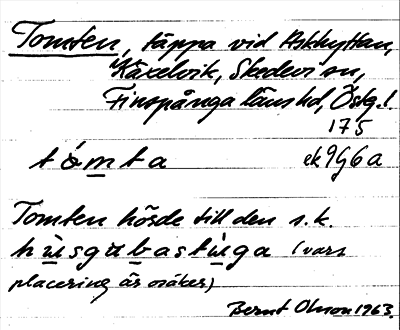 Tomten, täppa vid Askhyttan,
Käxelvik, Skedevi sn,
Finspånga läns hd, Östg.l.
175
tómta ek 9g6a
Tomten hörde till den s.k.
(vars
placering är osäker)
Bernt Olsson 1963.